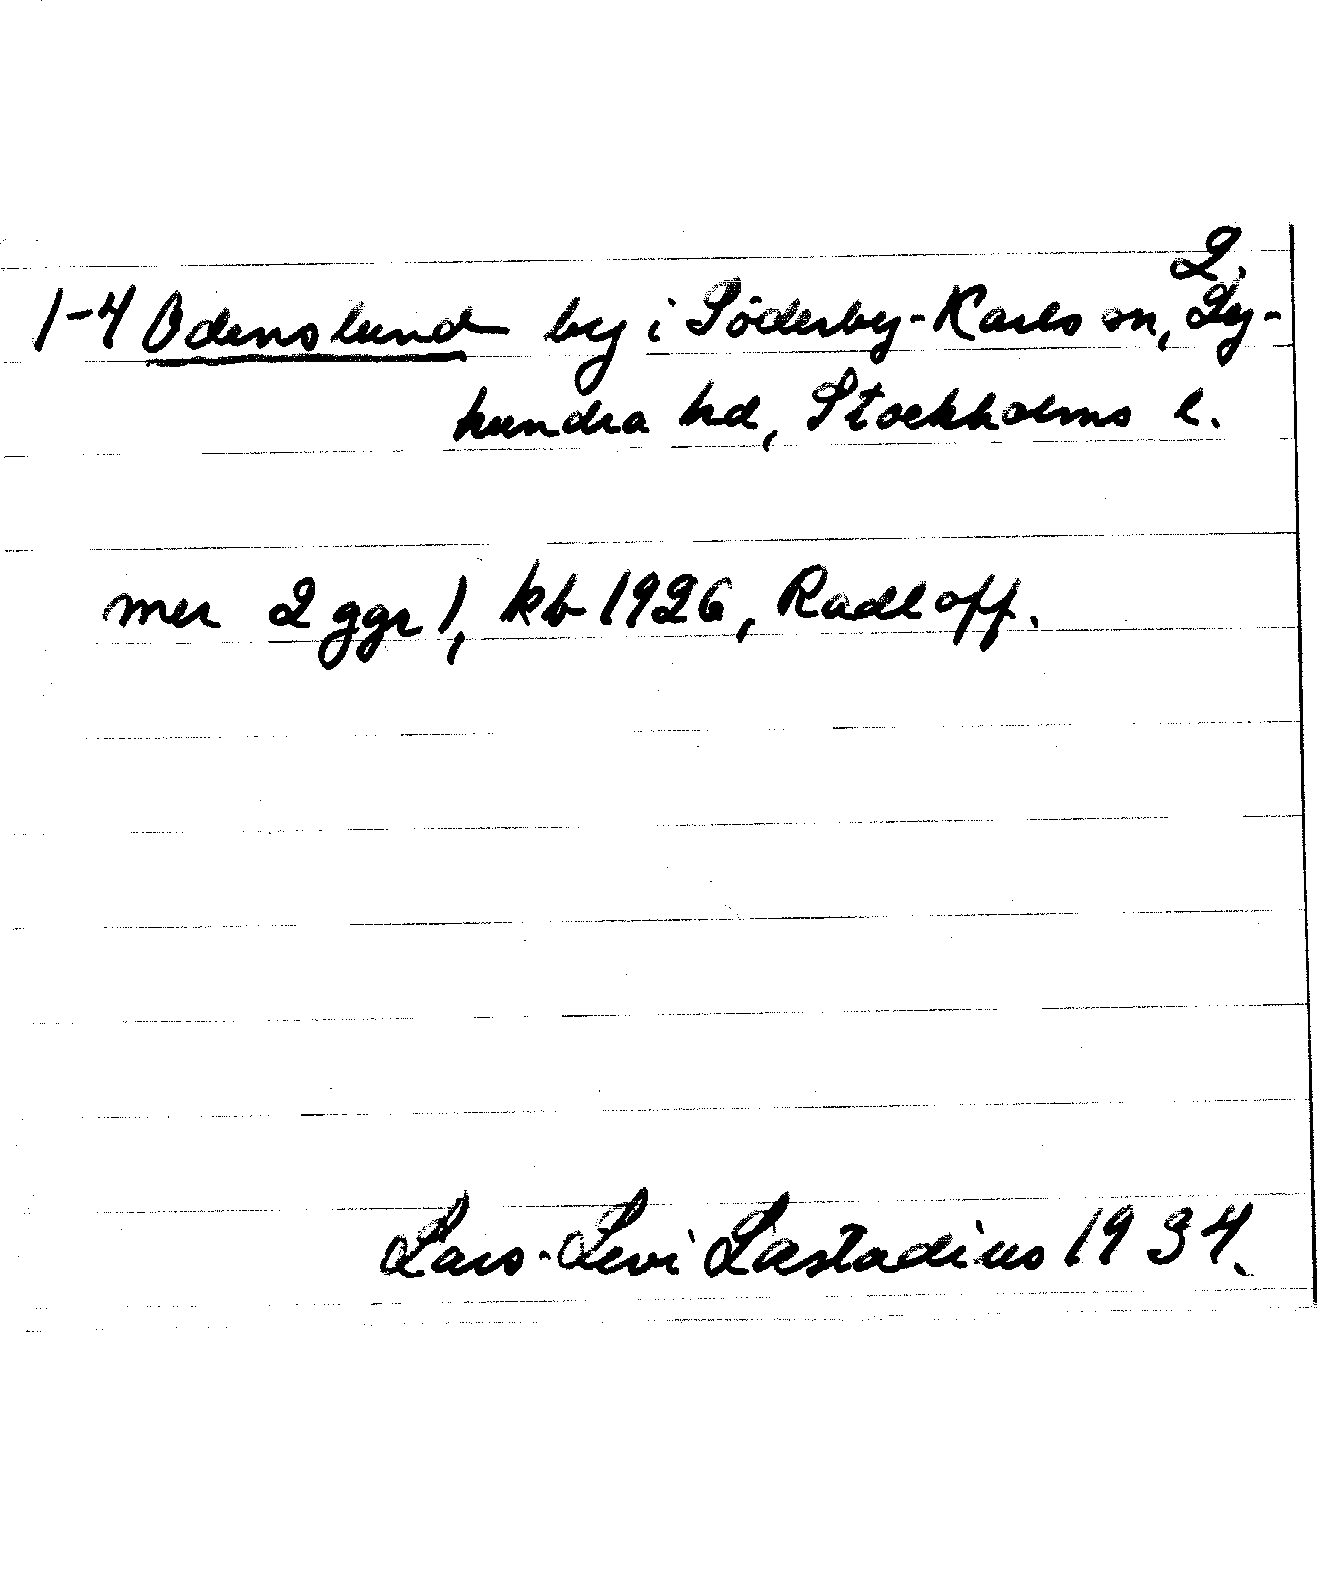 2.
1-4 Odenslund by i Söderby-Karls sn, Ly-
hundra hd, Stockholms l.
mer 2 ggr), kb 1926, Radloff.
Lars-Levi Læstadius 1934.